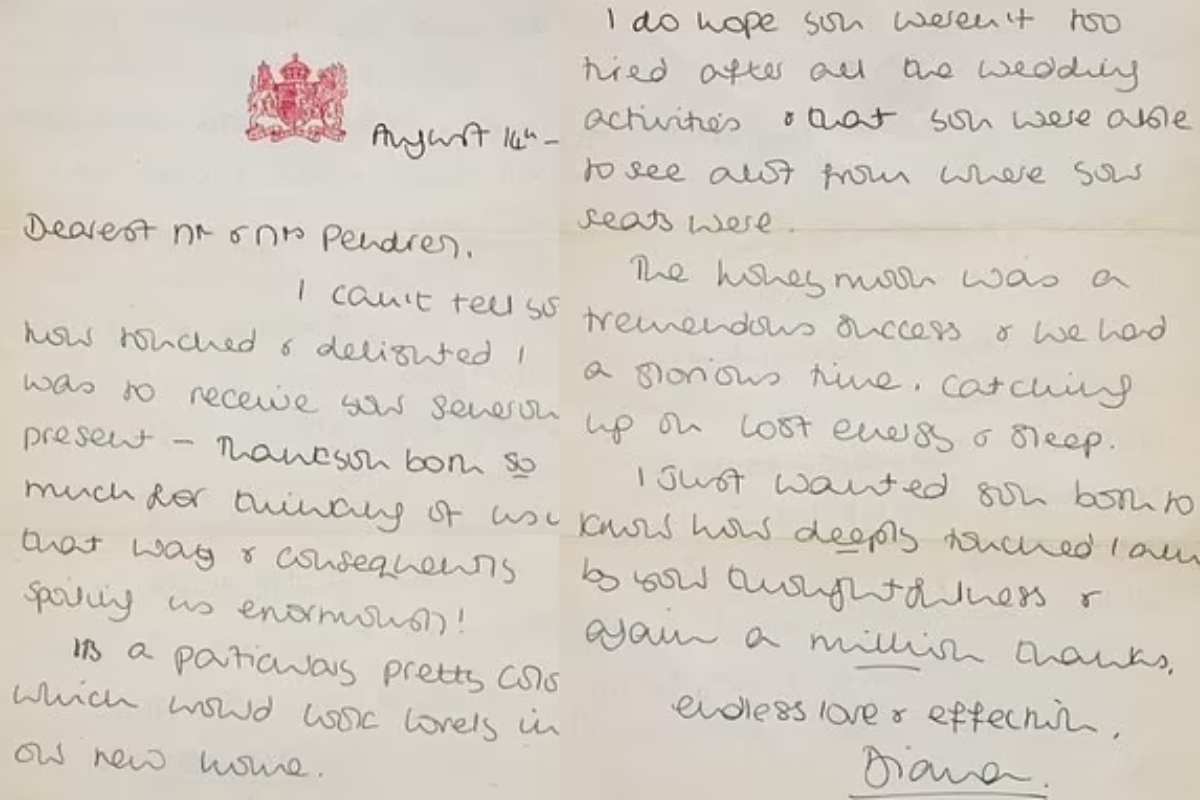 August 14th –
Dearest Mr & Mrs Pendrey.
I can't tell yo
how touched & delighted I
was to receive your generou
present – Thankyou both so
much for thinking of us i
that way & consequently
spoiling us enormously!
Its a particularly pretty colo
which would look lovely in
our new home.
I do hope you weren't too
tired after all the wedding
activities & that you were able
to see alot from where your
seats were.
The honeymoon was a
tremendous success & we had
a glorious time, catching
up on lost energy & sleep.
I just wanted you both to
know how deeply touched I am
by your thoughtfulness &
again a million thanks,
endless love & effection,
Diana.